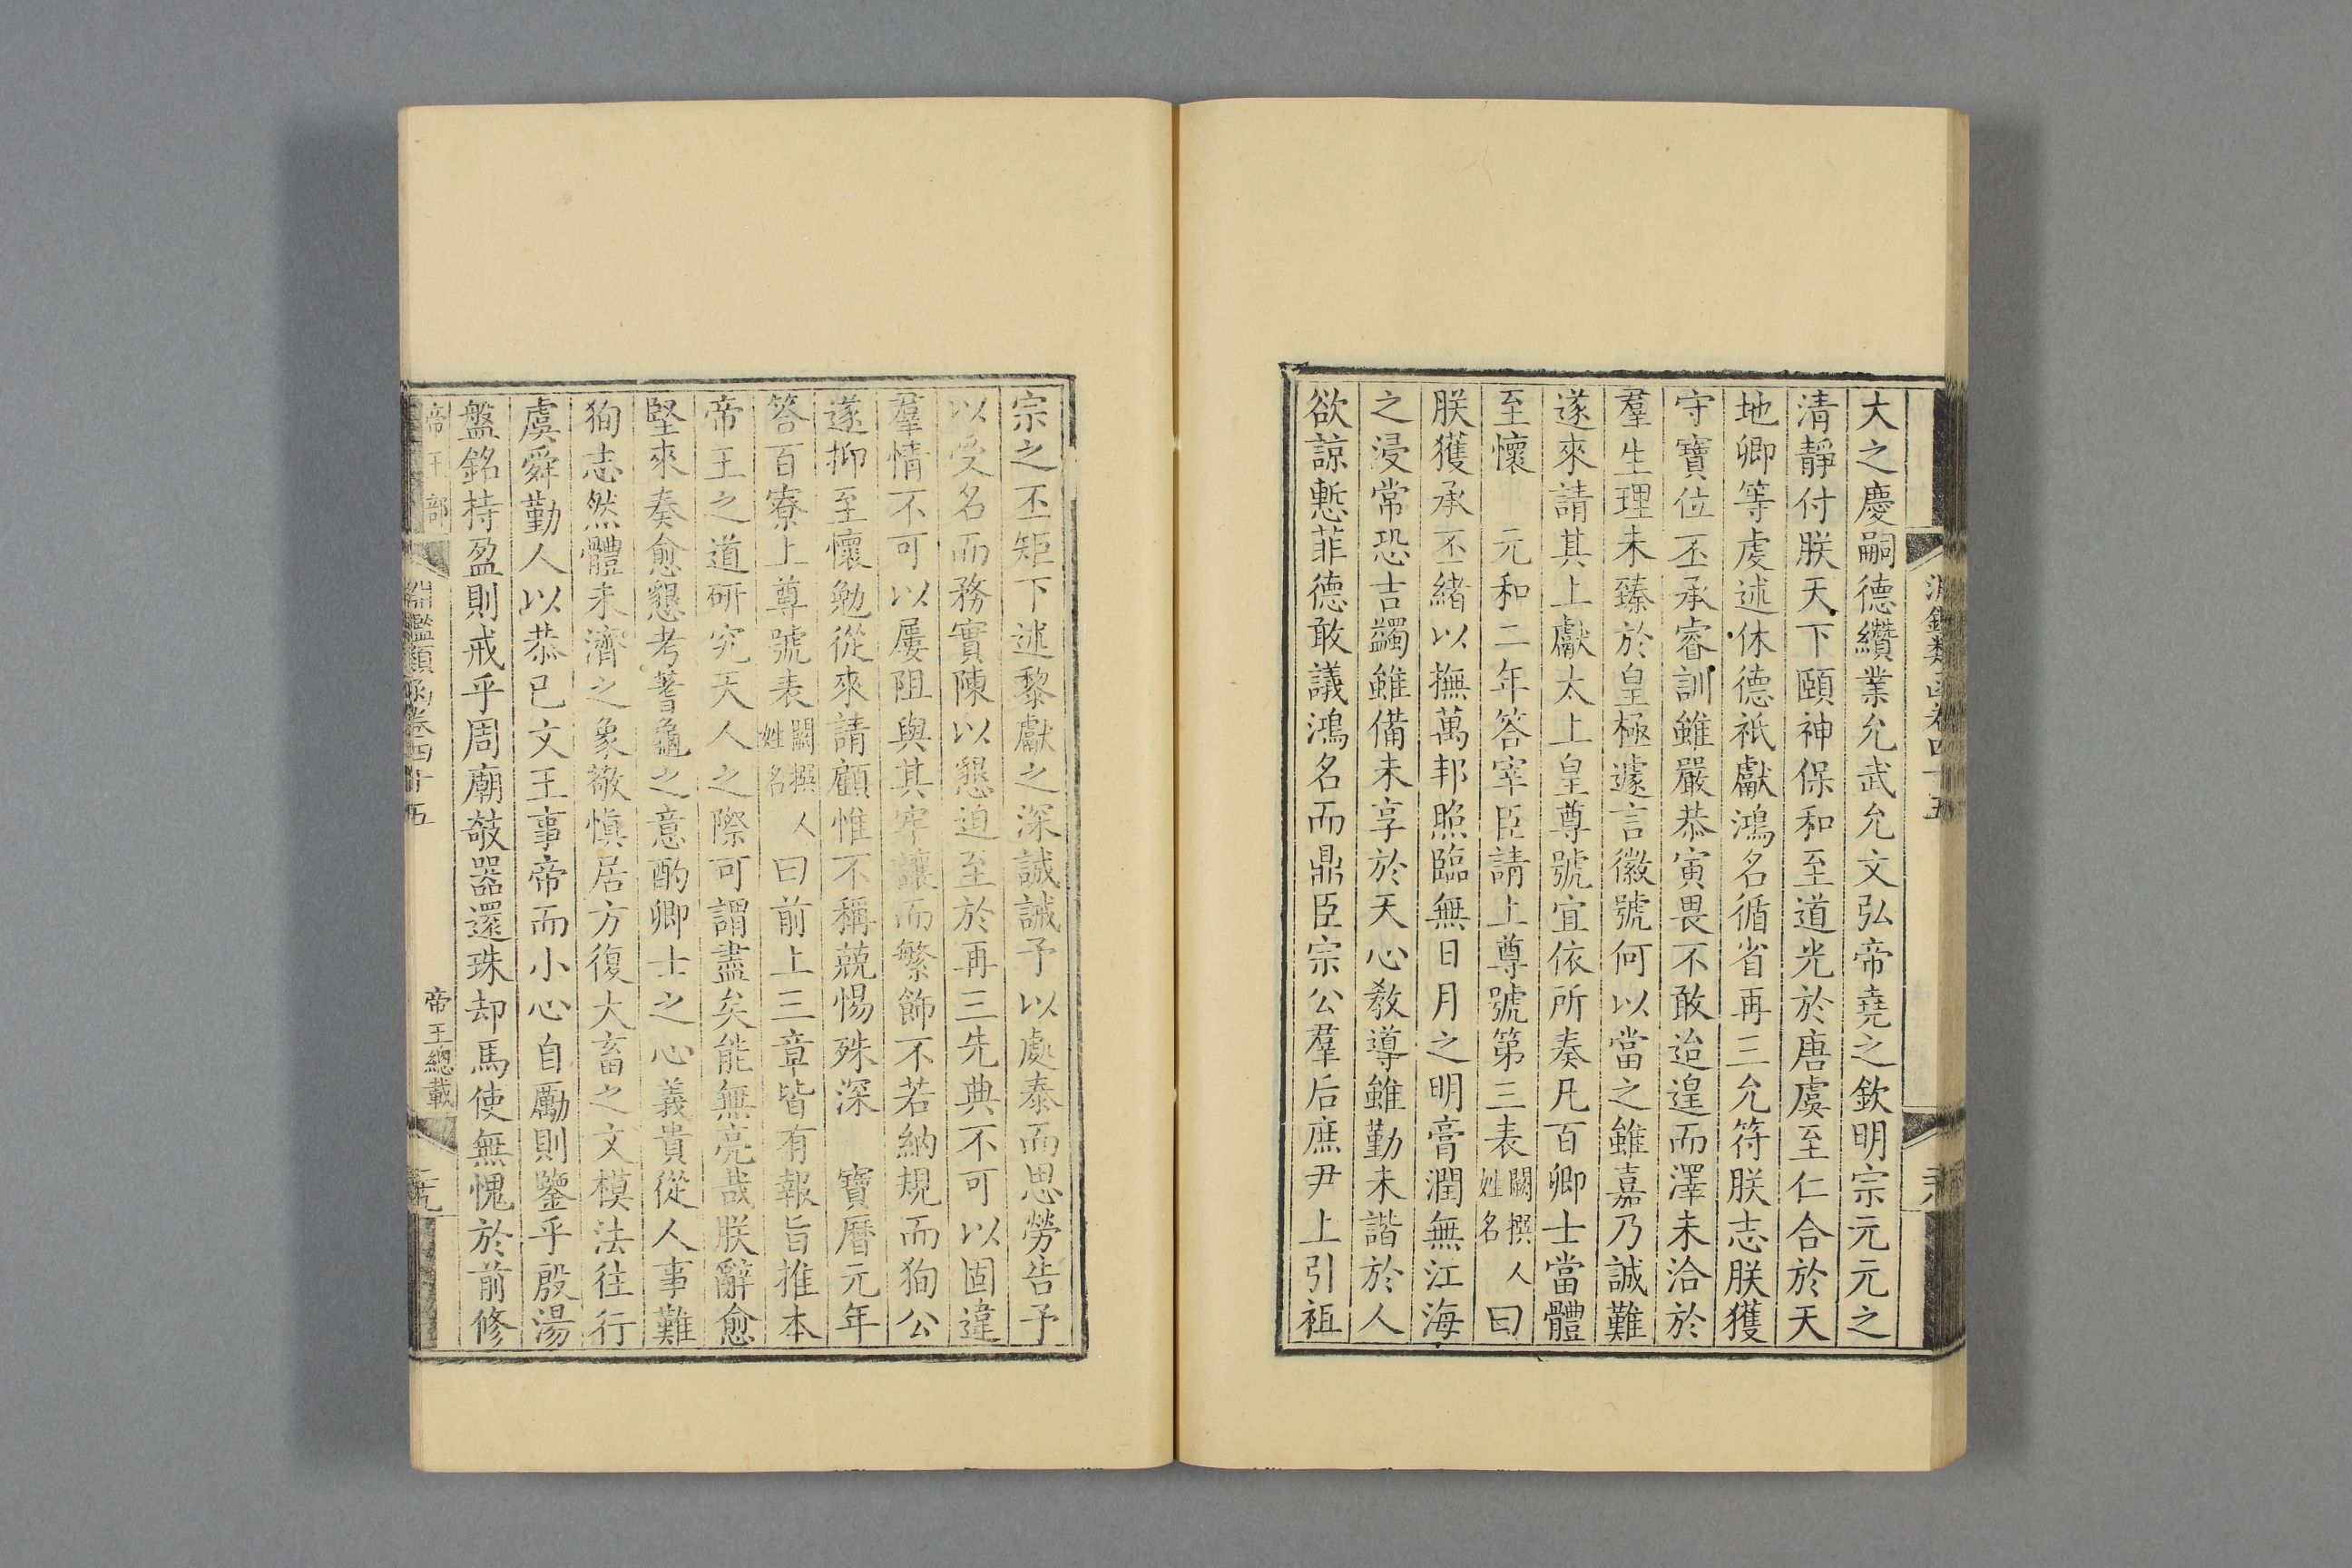 淵鑑類函卷四十五
大之慶嗣德纘業允武允文弘帝堯之欽明宗元元之
清靜付朕天下頤神保和至道光於唐虞至仁合於天
地卿等虔述休德祇獻鴻名循省再三允符朕志朕獲
守寶位丕承睿訓雖嚴恭寅畏不敢迨遑而澤未洽於
羣生理未臻於皇極遽言徽號何以當之雖嘉乃誠難
遂來請其上獻太上皇尊號宜依所奏凡百卿士當體
至懷　元和二年答宰臣請上尊號第三表闕撰人姓名曰
朕獲承丕緒以撫萬邦照臨無日月之明膏潤無江海
之浸常恐吉蠲雖備未享於天心敎導雖勤未諧於人
欲諒慙菲德敢議鴻名而鼎臣宗公羣后庶尹上引祖
宗之丕矩下述黎獻之深誠誡予以處泰而思勞告予
以受名而務實陳以懇迫至於再三先典不可以固違
羣情不可以屢阻與其牢讓而繁飾不若納規而狥公
遂抑至懷勉從來請顧惟不稱兢惕殊深　寶曆元年
答百寮上尊號表闕撰人姓名曰前上三章皆有報旨推本
帝王之道研究天人之際可謂盡矣能無亮哉朕辭愈
堅來奏愈懇考蓍龜之意酌卿士之心義貴從人事難
狥志然體未濟之象敬愼居方復大畜之文模法往行
虞舜勤人以恭已文王事帝而小心自勵則鑒乎殷湯
盤銘持盈則戒乎周廟敧器還珠却馬使無愧於前修
帝王部　淵鑑類函卷四十五　帝王總載